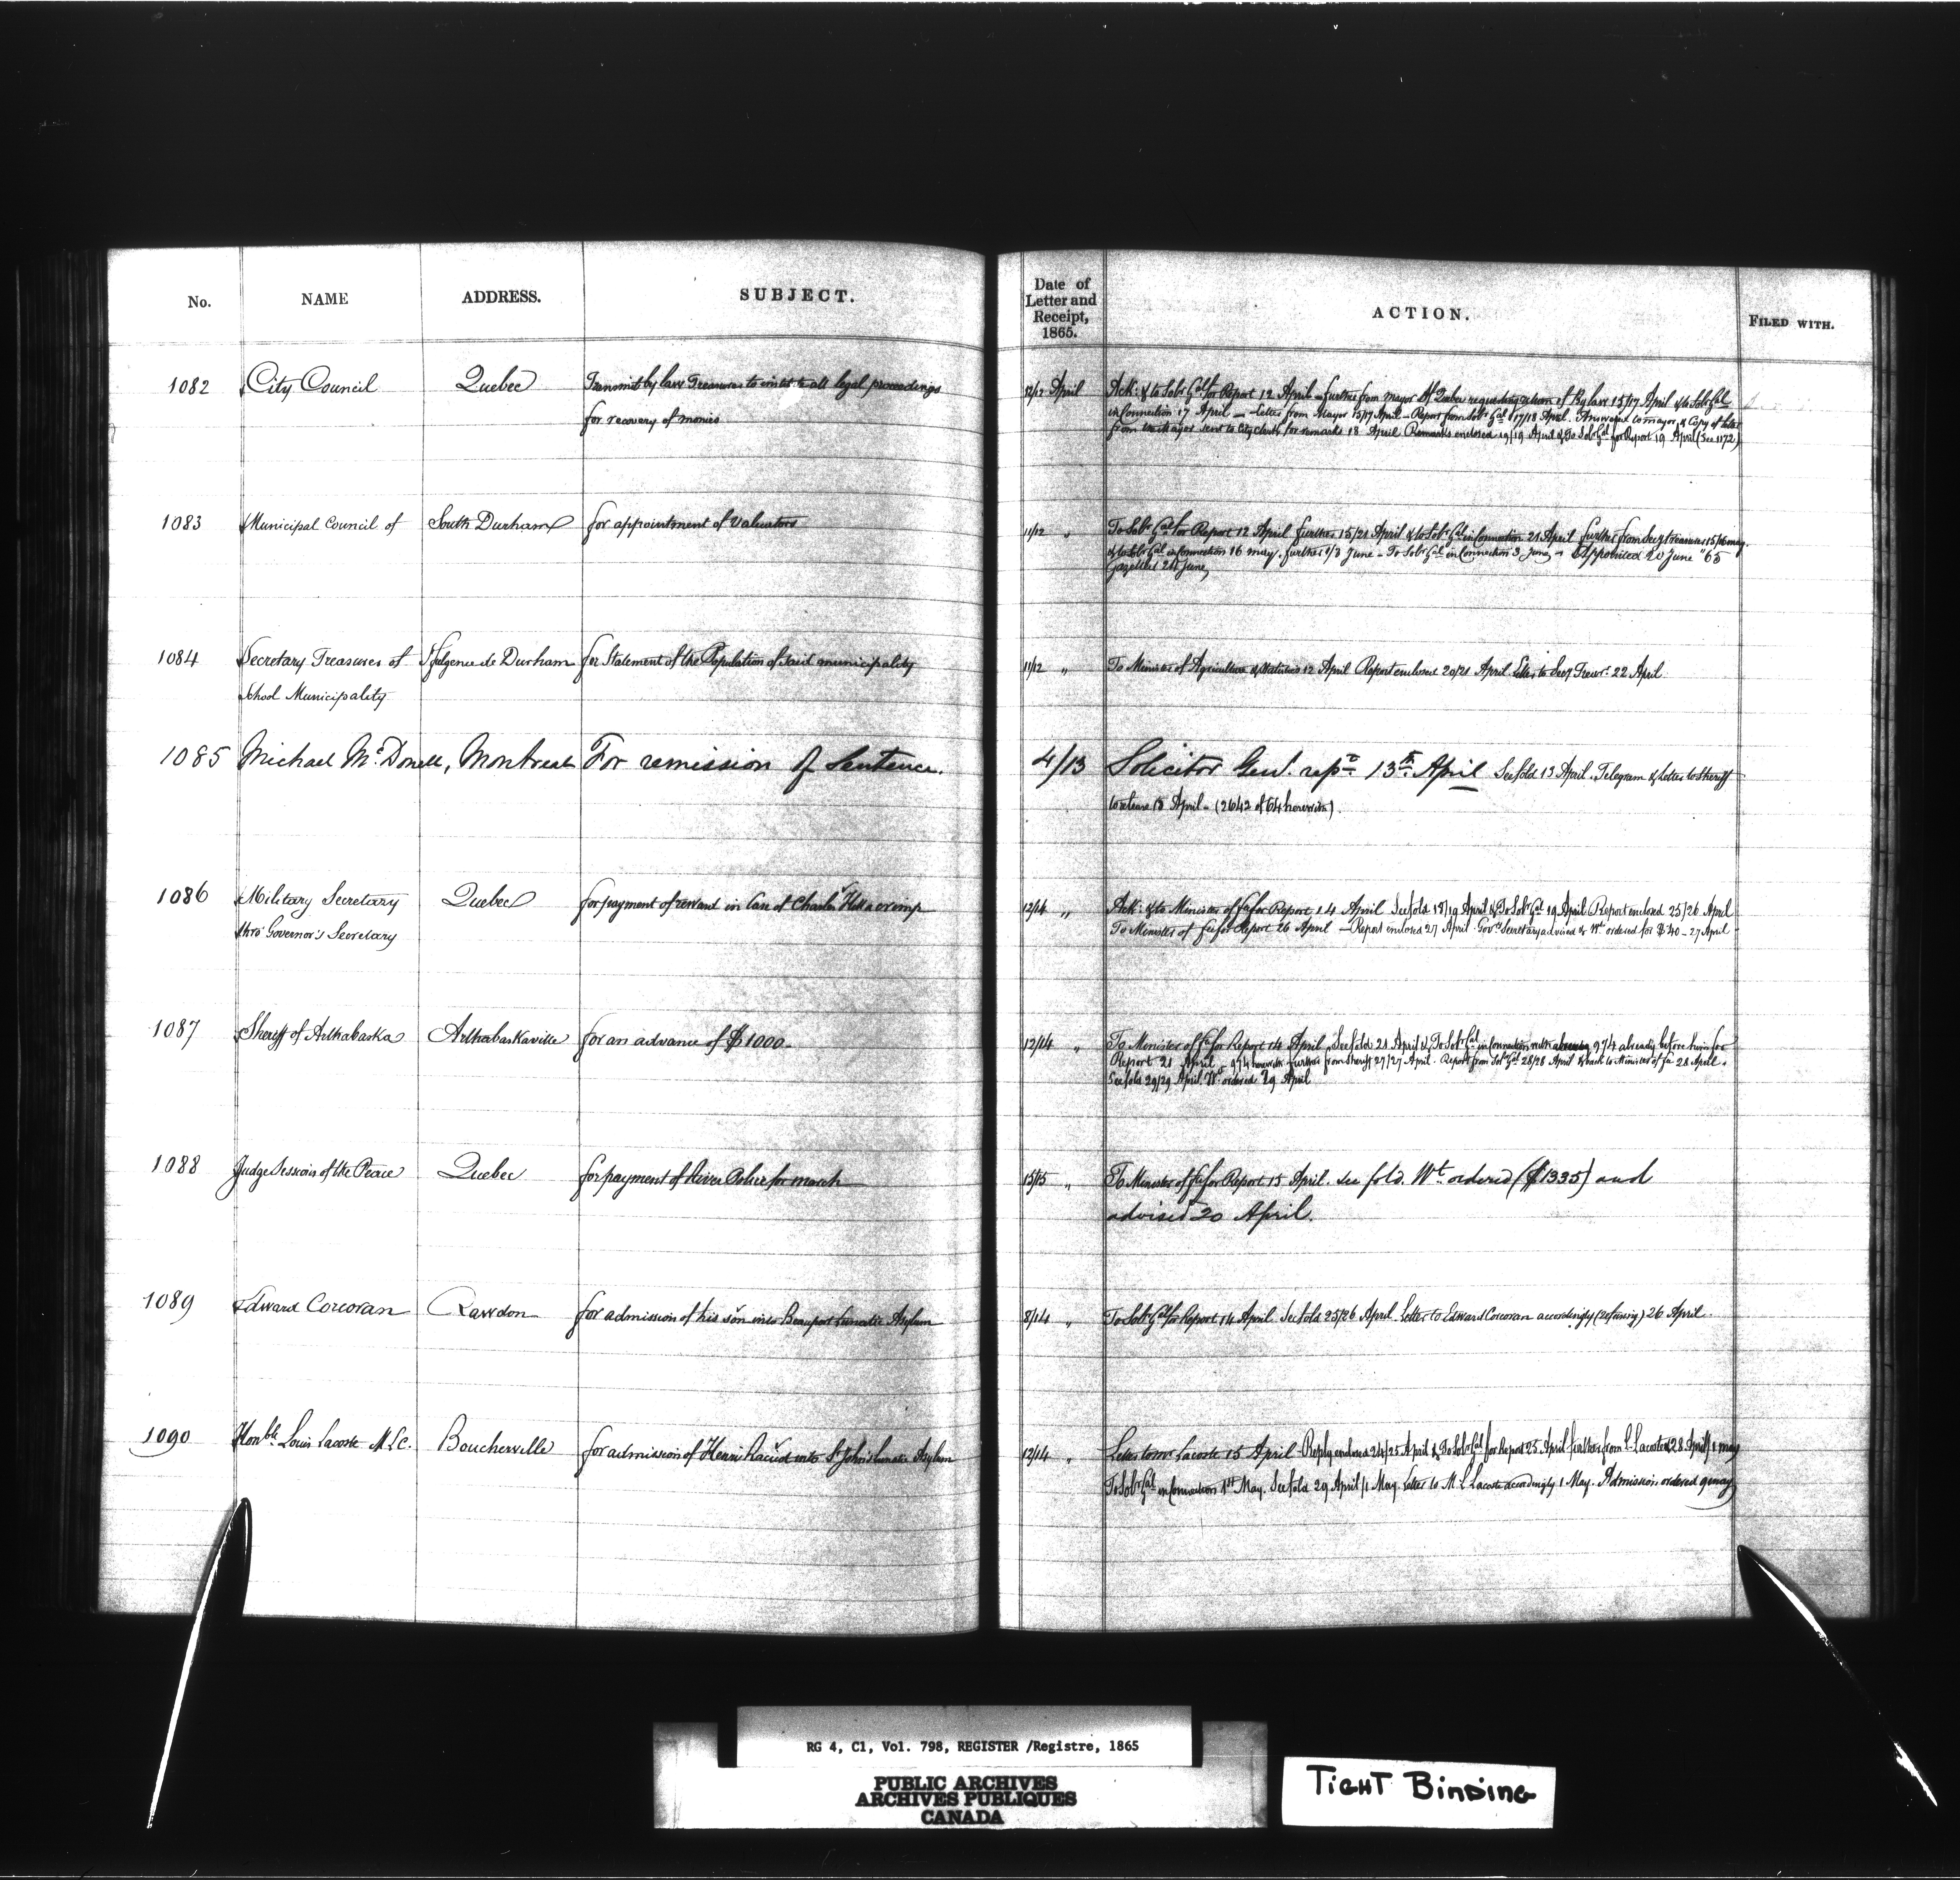 No. NAME ADDRESS. SUBJECT. Date of Letter and Receipt, 1865. ACTION. FILED WITH.
1082 City Council Quebec Transmits by law Treasurer to all legal proceedings
for recovery of monies
12/12 April Ack: & to Solr Genl for Report 12 April further from Mayor of Quebec requesting of By law 15/17 April & to Solr Genl
in Connection 17 April — letter from Mayor 15/17 April — Report from Solr Genl 17/18 April. Answered to mayor & Copy of letter
from the Mayor sent to City clerk for remarks 18 April Remarks enclosed 19/19 April & To Solr Genl for Report 19 April (See 1172)
1083 Municipal Council of South Durham for appointment of Valuators
11/12 " To Solr Genl for Report 12 April further 15/21 April & to Solr Genl in Connection 21 April further from Secy treasurer 15/16 may.
& to Solr Genl in Connection 16 may. further 1/3 June — To Solr Genl in Connection 3 June — Appointed 20 June "65
Gazetted 24 June
1084 Secretary Treasurer of St fulgence de Durham for Statement of the Population of said municipality
School Municipality
11/12 " To Minister of Agriculture & Statistics 12 April Report enclosed 20/21 April Letter to Secy Treasr. 22 April.
1085 Michael McDonell, Montreal For remission of Sentence.
4/13 Solicitor Genl. repd. 13th. April See fold 13 April. Telegram & Letter to Sheriff
to release 13 April — (2642 of 64 herewith).
1086 Military Secretary Quebec for payment of reward in Case of Charles Hill a crimp
thro' Governor's Secretary
12/14 " Ack: & to Minister of fce for Report 14 April See fold 18/19 April & To Solr Genl 19 April Report enclosed 25/26 April
To Minister of fce for Report 26 April — Report enclosed 27 April. Govrs Secretary advised & Wt. ordered for $40 — 27 April
1087 Sheriff of Arthabaska Arthabaskaville for an advance of $1000.
12/14 " To Minister of fce for Report 14 April, See fold 21 April & To Solr Genl in Connection with 974 already before him for
Report 21 April — 974 herewith. further from Sheriff 27/27 April. Report from Solr Genl 28/28 April & back to Minister of fce 28 April.
See fold 29/29 April. Wt ordered 29 April
1088 Judge Sessions of the Peace Quebec for payment of River Police for march
15/15 " To Minister of fce for Report 15 April. See fold. Wt. ordered ($1335) and
advised 20 April.
1089 Edward Corcoran Rawdon for admission of his son into Beauport Lunatic Asylum
8/14 " To Solr Genl for Report 14 April See fold 25/26 April. Letter to Edward Corcoran accordingly (refusing) 26 April.
1090 Honble. Louis Lacoste M.L.C. Boucherville for admission of Henri into St John's Lunatic Asylum
12/14 " Letter to Mr Lacoste 15 April Reply enclosed 24/25 April & To Solr Genl for Report 25 April further from L. Lacoste 28 April/1 may
To Solr Genl in Connection 1st May. See fold 29 April/1 May. Letter to M L Lacoste accordingly 1 May. Admission ordered 9 may
RG 4, C1, Vol. 798, REGISTER /Registre, 1865
PUBLIC ARCHIVES
ARCHIVES PUBLIQUES
CANADA
TIGHT BINDING